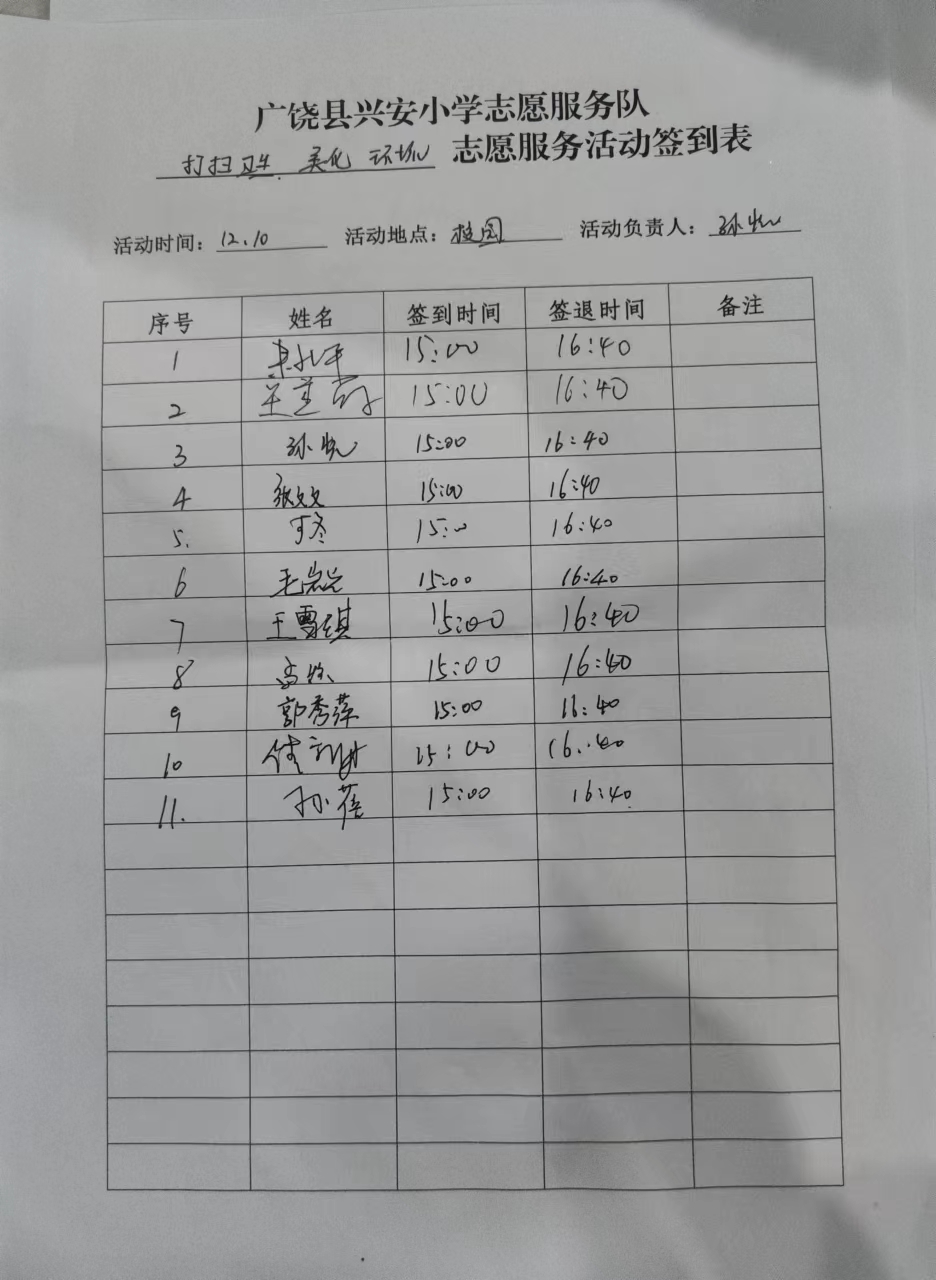 广饶县兴安小学志愿服务队
打扫卫生 美化 环境 志愿服务活动签到表
活动时间：12.10 活动地点：校园 活动负责人：孙悦
序号 姓名 签到时间 签退时间 备注
1 15:00 16:40
2 15:00 16:40
3 孙悦 15:00 16:40
4 张文文 15:00 16:40
5. 15:00 16:40
6 毛岩岩 15:00 16:40
7 王雪琪 15:00 16:40
8 15:00 16:40
9 郭秀萍 15:00 16:40
10 15:00 16:40
11. 孙蓓 15:00 16:40